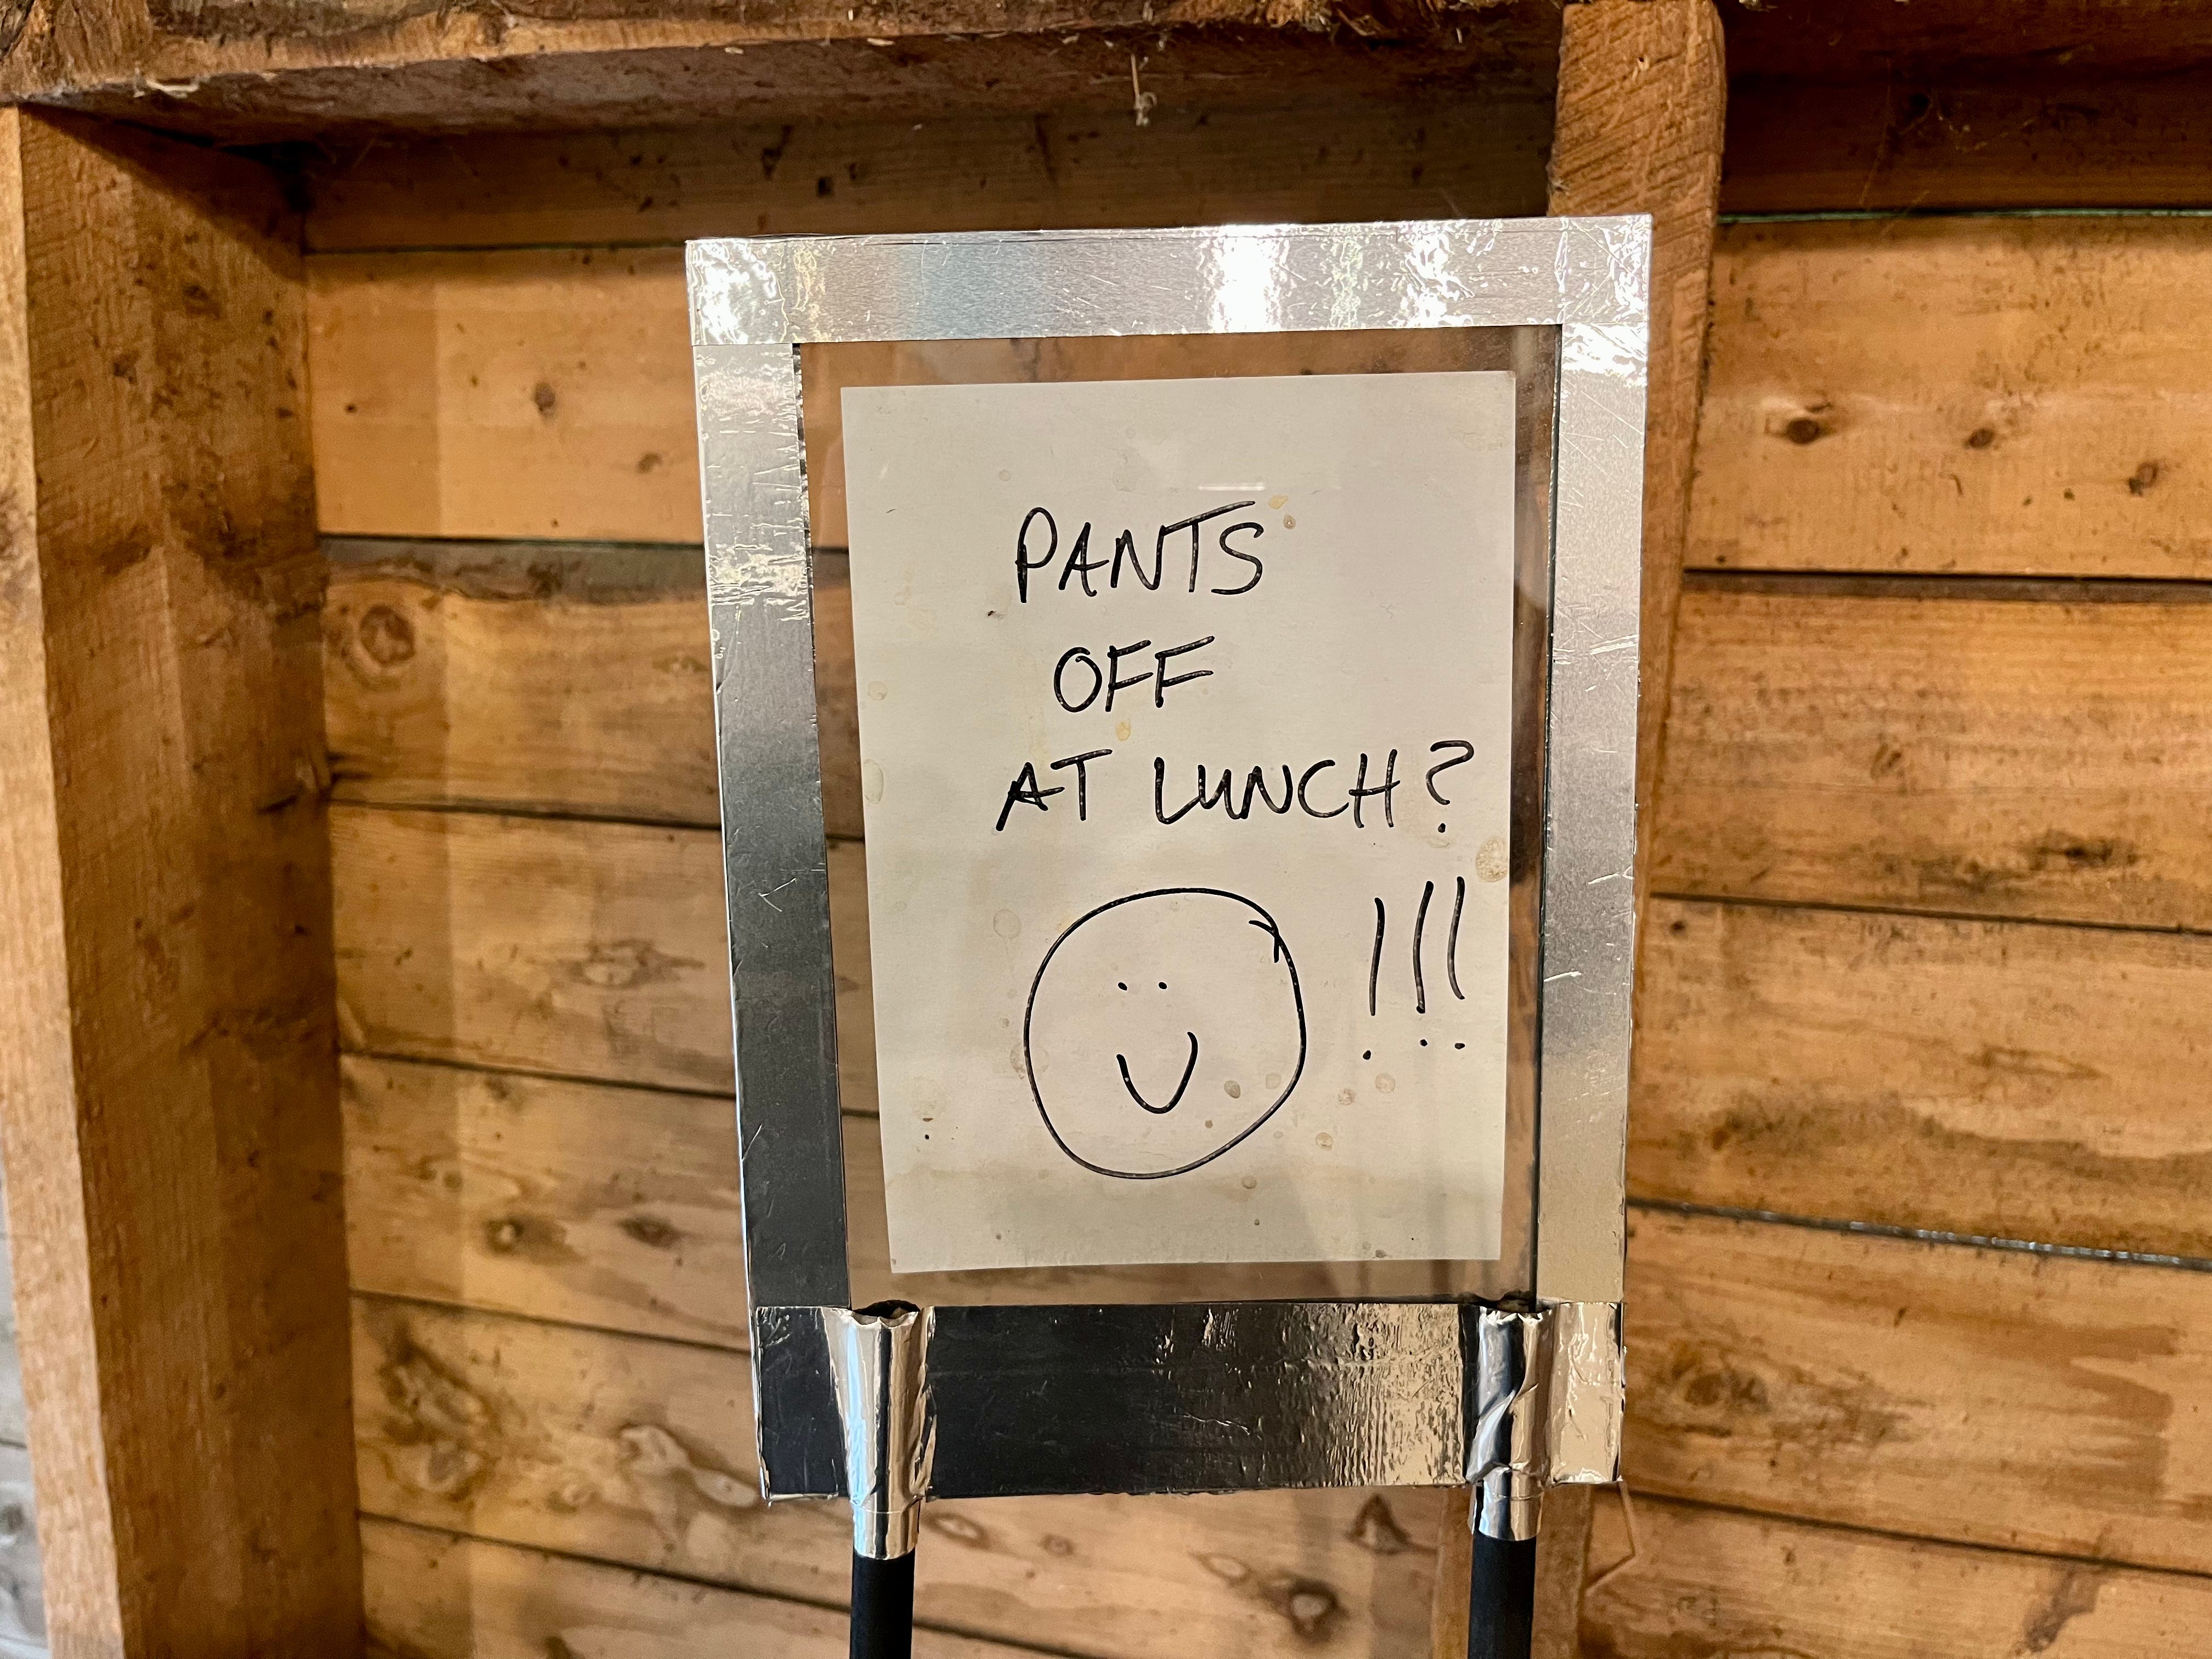 PANTS
OFF
AT LUNCH?
!!!